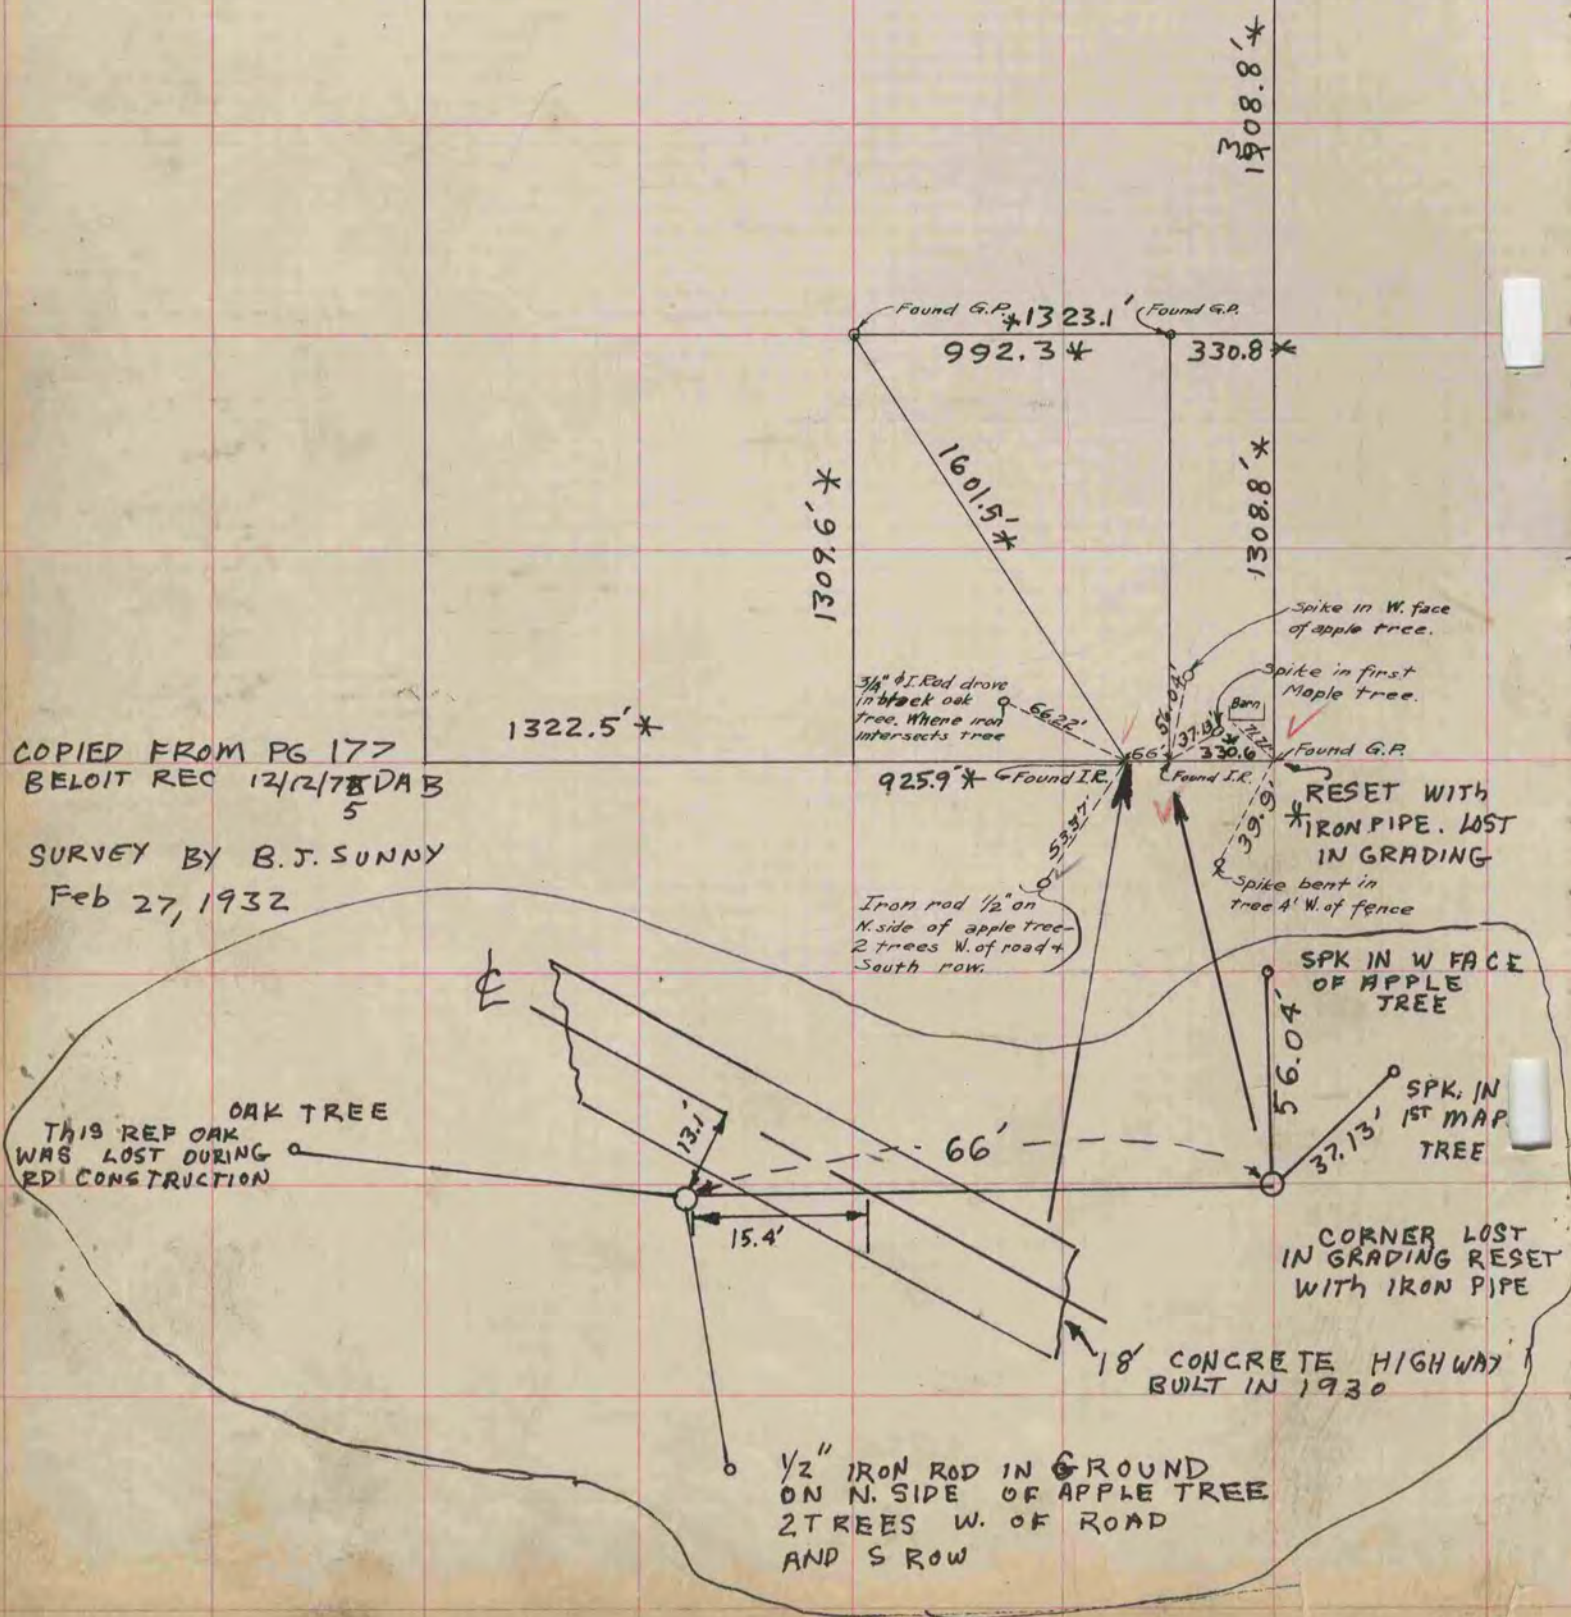 1308.8'*
Found G.P.
*1323.1'
Found G.P.
992.3*
330.8*
1309.6'*
1601.5'*
1308.8'*
Spike in W. face
of apple tree.
Spike in first
Maple tree.
3/4" ϕ I. Rod drove
in black oak
tree. Where iron
intersects tree
66.22'
56.04'
Barn
1322.5'*
66'
330.6*
Found G.P.
925.9'*
Found I.R.
Found I.R.
COPIED FROM PG 177
BELOIT REC 12/12/75 DAB
SURVEY BY B.J. SUNNY
Feb 27, 1932
RESET WITH
*IRON PIPE. LOST
IN GRADING
53.37'
39.9'
Spike bent in
tree 4' W. of fence
Iron rod 1/2" on
N. side of apple tree-
2 trees W. of road +
South row.
℄
SPK IN W FACE
OF APPLE
TREE
56.04'
OAK TREE
THIS REF OAK
WAS LOST DURING
RD CONSTRUCTION
13.1'
66'
SPK. IN
1ST MAP
TREE
37.13'
15.4'
CORNER LOST
IN GRADING RESET
WITH IRON PIPE
18' CONCRETE HIGHWAY
BUILT IN 1930
1/2" IRON ROD IN GROUND
ON N. SIDE OF APPLE TREE
2 TREES W. OF ROAD
AND S ROW